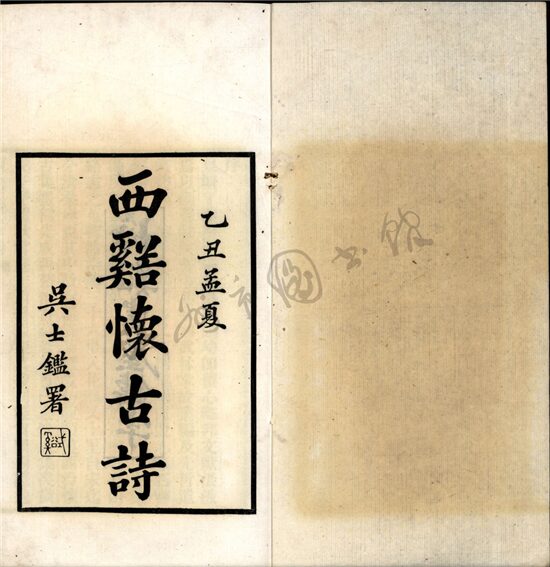 乙丑孟夏
西谿懷古詩
吳士鑑署